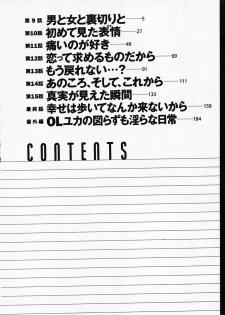 第9話 男と女と裏切りと 5
第10話 初めて見た表情 27
第11話 痛いのが好き 49
第12話 恋って求めるものだから 69
第13話 もう戻れない…? 91
第14話 あのころ、そして、これから 111
第15話 真実が見えた瞬間 133
最終話 幸せは歩いてなんか来ないから 159
番外編 OLユカの図らずも淫らな日常 184
CONTENTS